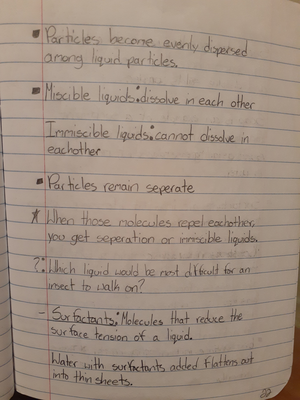 ▪ Particles become evenly dispersed
among liquid particles.
▪ Miscible liquids: dissolve in each other
Immiscible liquids: cannot dissolve in
eachother
▪ Particles remain seperate
* When those molecules repel eachother,
you get seperation or immcible liquids.
?: Which liquid would be most difficult for an
insect to walk on?
- Surfactants: Molecules that reduce the
surface tension of a liquid.
Water with surfactants added flattens out
into thin sheets.